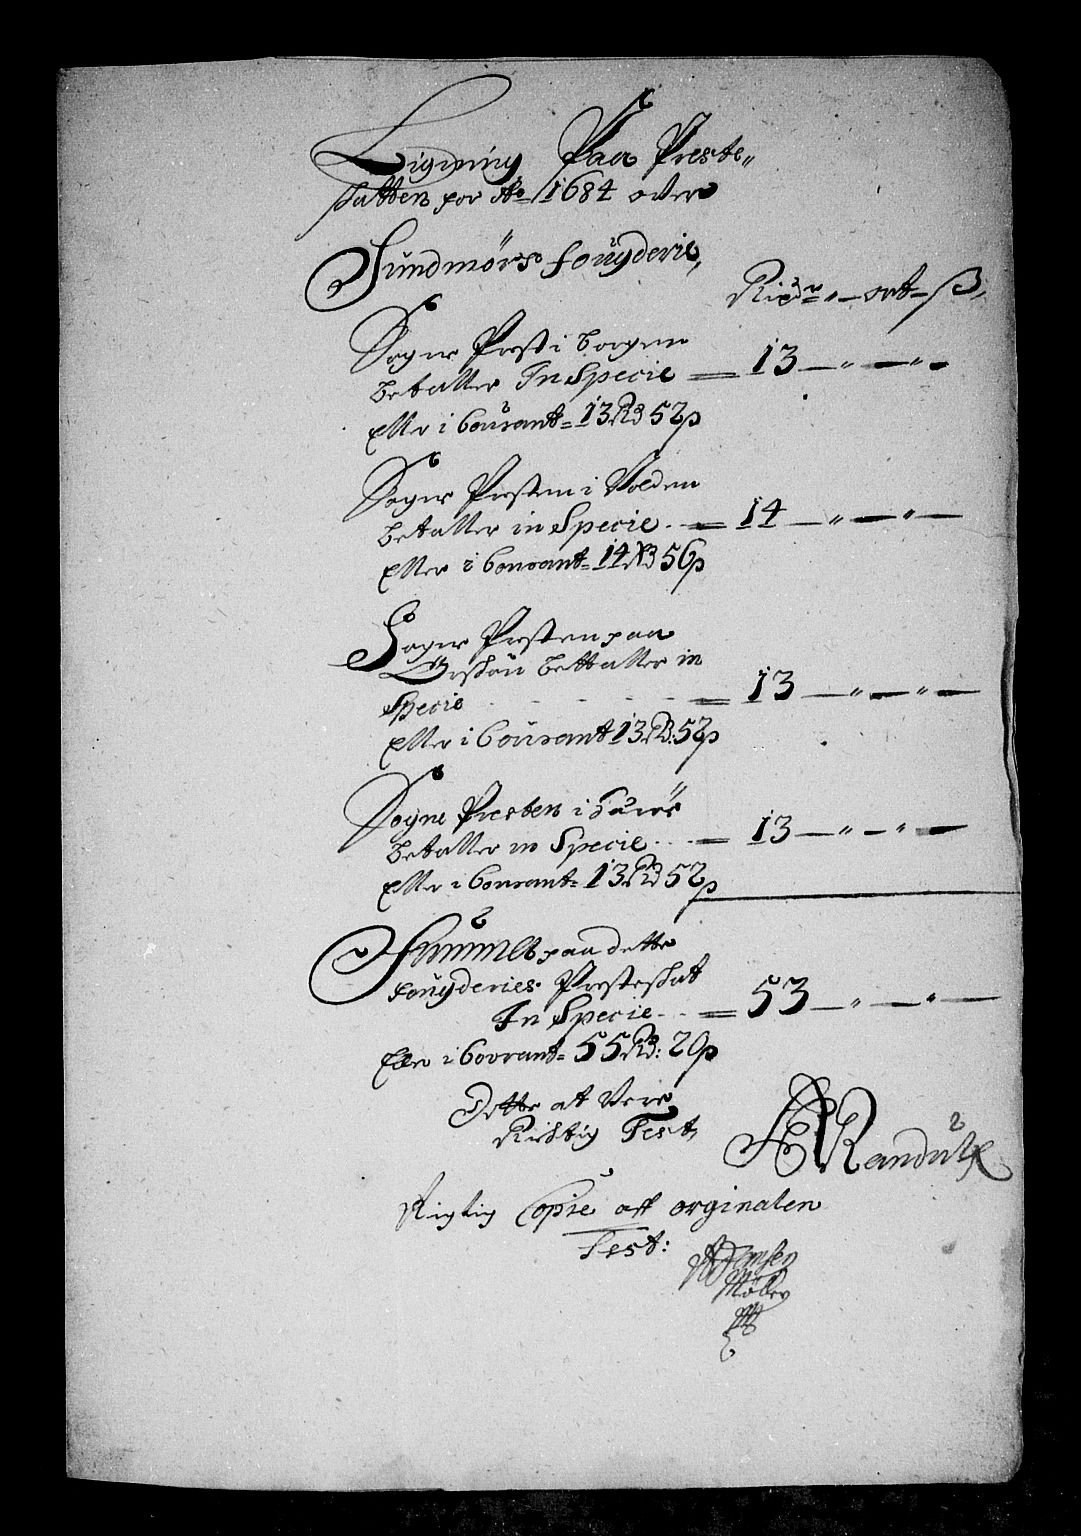 Ligning Paa Preste„
skatten for Ao 1684 over
Sundmørs fougderie,
Rixdr „ — ort — ß,
Sogne Prest i borgen
betaller In Specie = 13 — „ — „ —
eller i Courant = 13 Rd 52 p
Sogne Presten i Volden
betaller in Specie . = 14 — „ — „ —
eller i Courant = 14 Rd 56 p
Sogne Presten paa
Ørskou bettaller in
Specie = 13 — „ — „ —
eller i Courant 13 Rd: 52 p
Sogne Presten i Harøe
betaller in Specie . . = 13 — „ — „ —
eller i Courant = 13 Rd 52 p
Summa paa dette
fougderies Presteskat
In Specie . . = 53 — „ — „ —
Eller i Courant = 55 Rd: 20 p
Dette at Vere
Richtig Test,
Randulf
Rigtig Copie aff orginalen
Test:
Jensen
Møller